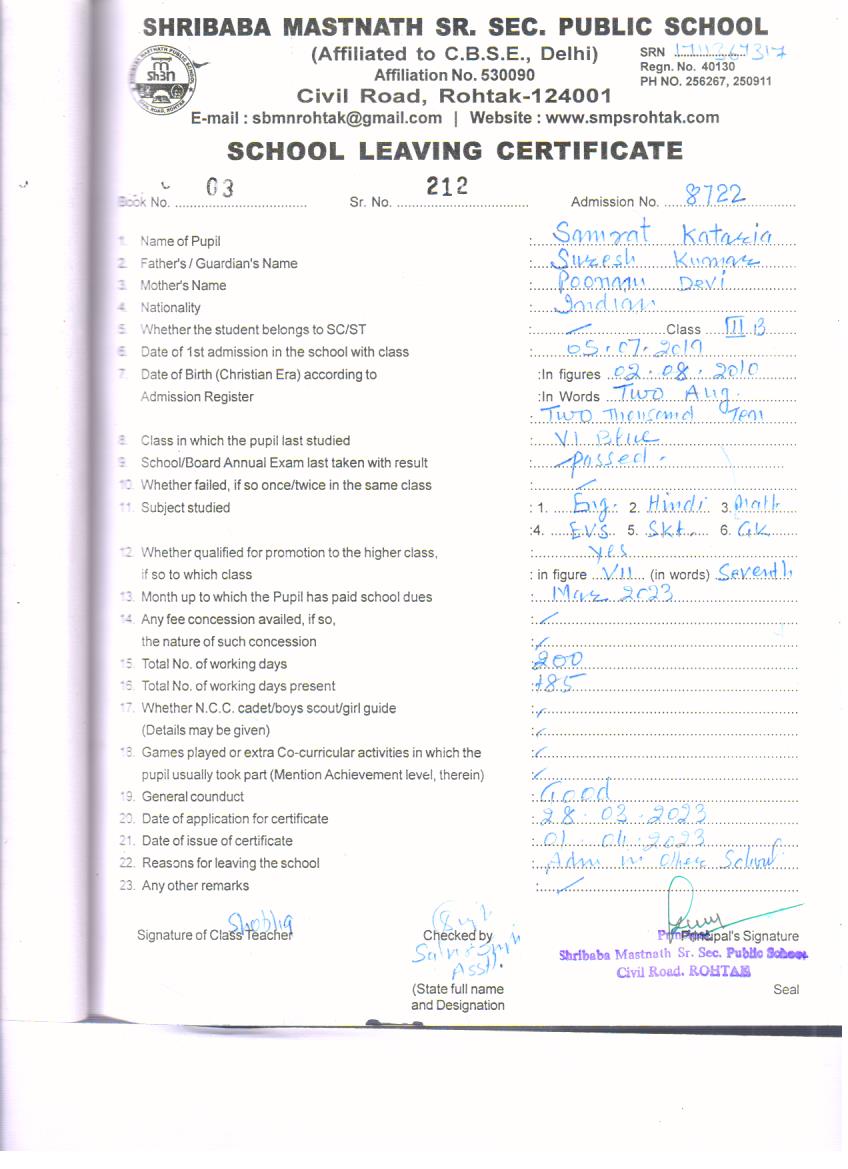 SHRIBABA MASTNATH SR. SEC. PUBLIC SCHOOL
(Affiliated to C.B.S.E., Delhi)
SRN 1711367317
Affiliation No. 530090
Regn. No. 40130
PH NO. 256267, 250911
Civil Road, Rohtak-124001
E-mail : sbmnrohtak@gmail.com | Website : www.smpsrohtak.com
SCHOOL LEAVING CERTIFICATE
Book No. 03 Sr. No. 212 Admission No. 8722
1. Name of Pupil : Samrat Kataria
2. Father's / Guardian's Name : Suresh Kumar
3. Mother's Name : Poonam Devi
4. Nationality : Indian
5. Whether the student belongs to SC/ST : Class III B
6. Date of 1st admission in the school with class : 05.07.2019
7. Date of Birth (Christian Era) according to :In figures 02.08.2010
Admission Register :In Words Two Aug.
: Two Thousand Ten
8. Class in which the pupil last studied : VI Blue
9. School/Board Annual Exam last taken with result : Passed.
10. Whether failed, if so once/twice in the same class :
11. Subject studied : 1. Eng. 2. Hindi 3. Math
:4. E.V.S. 5. Skt. 6. G.K
12. Whether qualified for promotion to the higher class, : Yes
if so to which class : in figure VII (in words) Seventh
13. Month up to which the Pupil has paid school dues : Mar 2023
14. Any fee concession availed, if so, :
the nature of such concession :
15. Total No. of working days : 200
16. Total No. of working days present : 185
17. Whether N.C.C. cadet/boys scout/girl guide :
(Details may be given) :
18. Games played or extra Co-curricular activities in which the :
pupil usually took part (Mention Achievement level, therein) :
19. General counduct : Good
20. Date of application for certificate : 28.03.2023
21. Date of issue of certificate : 01.04.2023
22. Reasons for leaving the school : Adm in Other School
23. Any other remarks :
Signature of Class Teacher Checked by Principal's Signature
Asstt.
Shribaba Mastnath Sr. Sec. Public School
Civil Road. ROHTAK
(State full name Seal
and Designation